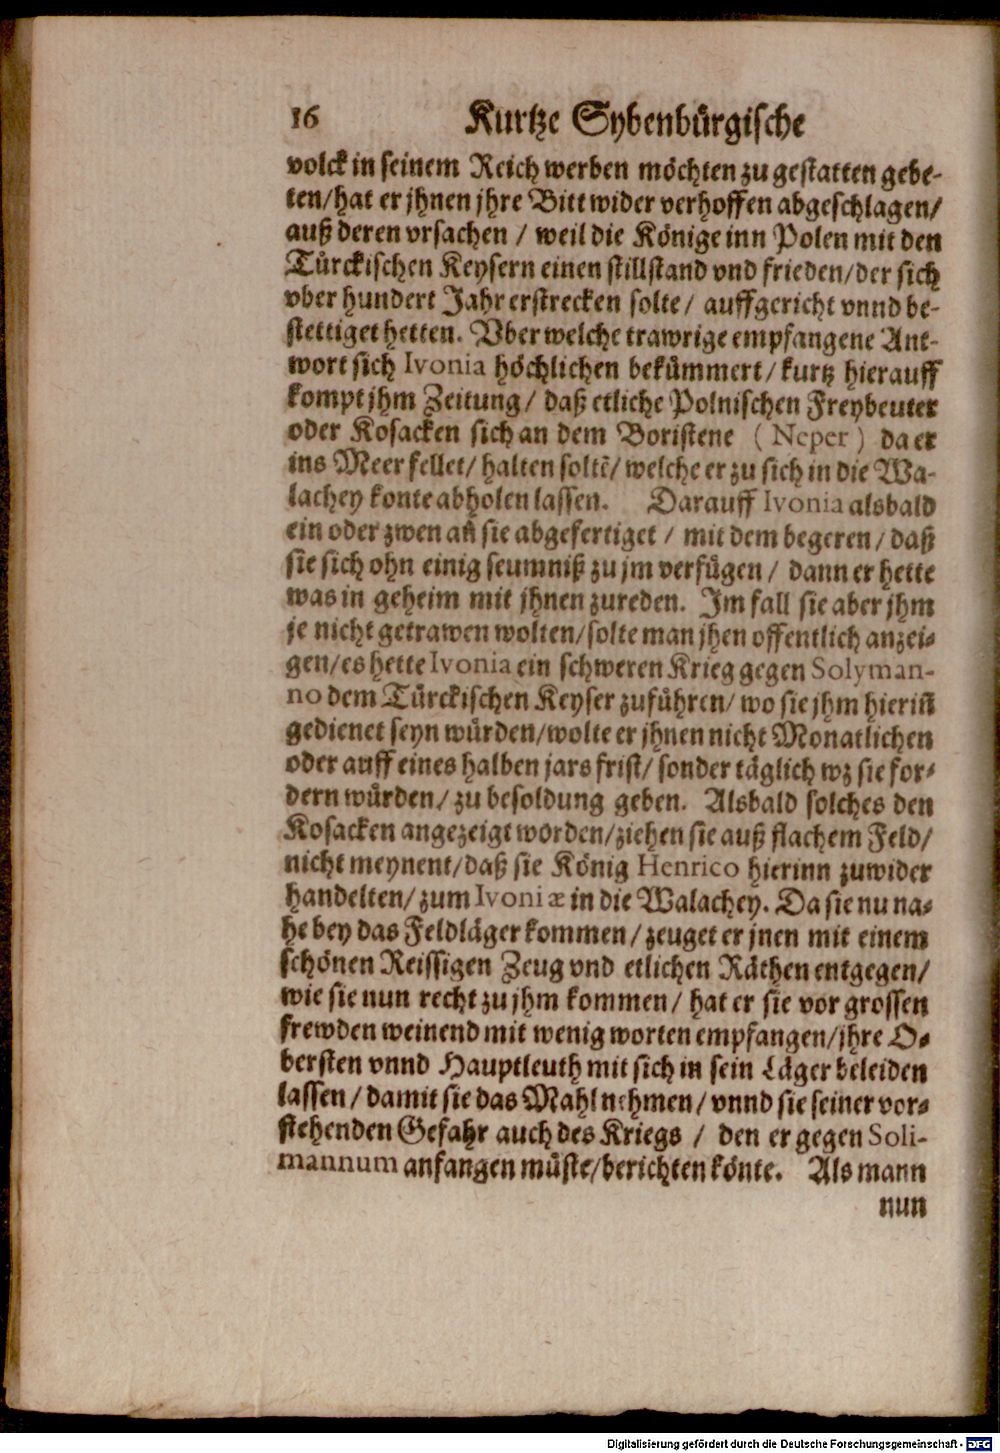 16 Kurtze Sybenbürgische
volck in seinem Reich werben möchten zu gestatten gebe-
ten/hat er jhnen jhre Bitt wider verhoffen abgeschlagen/
auß deren vrsachen / weil die Könige inn Polen mit den
Türckischen Keysern einen stillstand vnd frieden/der sich
vber hundert Jahr erstrecken solte/ auffgericht vnnd be-
stettiget hetten. Vber welche trawrige empfangene Ant-
wort sich Ivonia höchlichen bekümmert/kurtz hierauff
kompt jhm Zeitung/ daß etliche Polnischen Freybeuter
oder Kosacken sich an dem Boristene (Neper) da er
ins Meer fellet/halten soltẽ/welche er zu sich in die Wa-
lachey konte abholen lassen. Darauff Ivonia alsbald
ein oder zwen an sie abgefertiget / mit dem begeren/daß
sie sich ohn einig seumniß zu jm verfügen/ dann er hette
was in geheim mit jhnen zureden. Im fall sie aber jhm
je nicht getrawen wolten/solte man jhen offentlich anzei-
gen/es hette Ivonia ein schweren Krieg gegen Solyman-
no dem Türckischen Keyser zuführen/wo sie jhm hierin̄
gedienet seyn würden/wolte er jhnen nicht Monatlichen
oder auff eines halben jars frist/sonder täglich wz sie for-
dern würden/zu besoldung geben. Alsbald solches den
Kosacken angezeigt worden/ziehen sie auß flachem Feld/
nicht meynent/daß sie König Henrico hierinn zuwider
handelten/zum Ivoniæ in die Walachey. Da sie nu na-
he bey das Feldläger kommen/zeuget er jnen mit einem
schönen Reissigen Zeug vnd etlichen Räthen entgegen/
wie sie nun recht zu jhm kommen/ hat er sie vor grossen
frewden weinend mit wenig worten empfangen/jhre O-
bersten vnnd Hauptleuth mit sich in sein Läger beleiden
lassen/damit sie das Mahl nehmen/vnnd sie seiner vor-
stehenden Gefahr auch des Kriegs / den er gegen Soli-
mannum anfangen müste/berichten könte. Als mann
nun
Digitalisierung gefördert durch die Deutsche Forschungsgemeinschaft - DFG